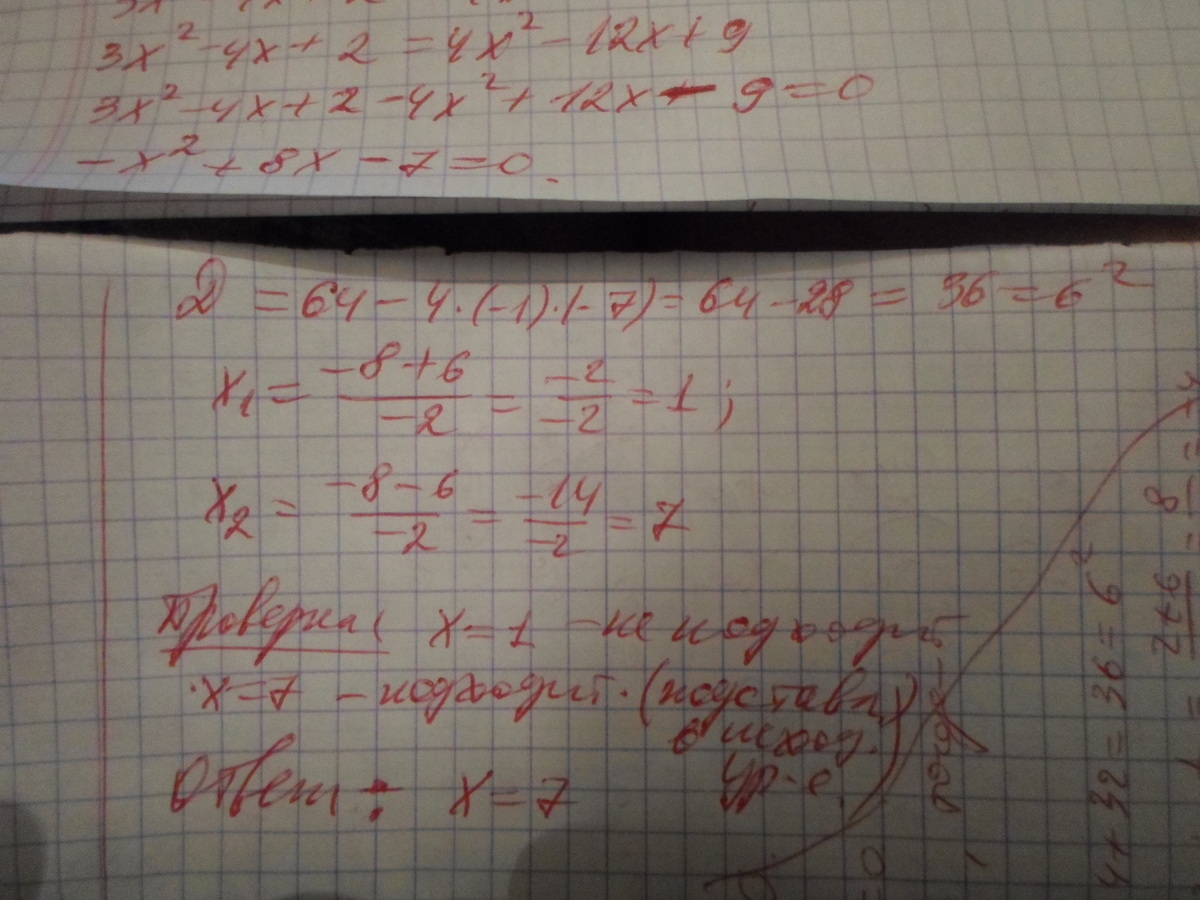 3x² - 4x + 2 = 4x² - 12x + 9
3x² - 4x + 2 - 4x² + 12x - 9 = 0
-x² + 8x - 7 = 0.
D = 64 - 4·(-1)·(-7) = 64 - 28 = 36 = 6²
x₁ = (-8+6)/(-2) = (-2)/(-2) = 1;
x₂ = (-8-6)/(-2) = (-14)/(-2) = 7
Проверка: x = 1 - не подходит
x = 7 - подходит. (подставл)
в исход.
ур-е
Ответ: x = 7
4+32 = 36 = 6²
2+6 = 8